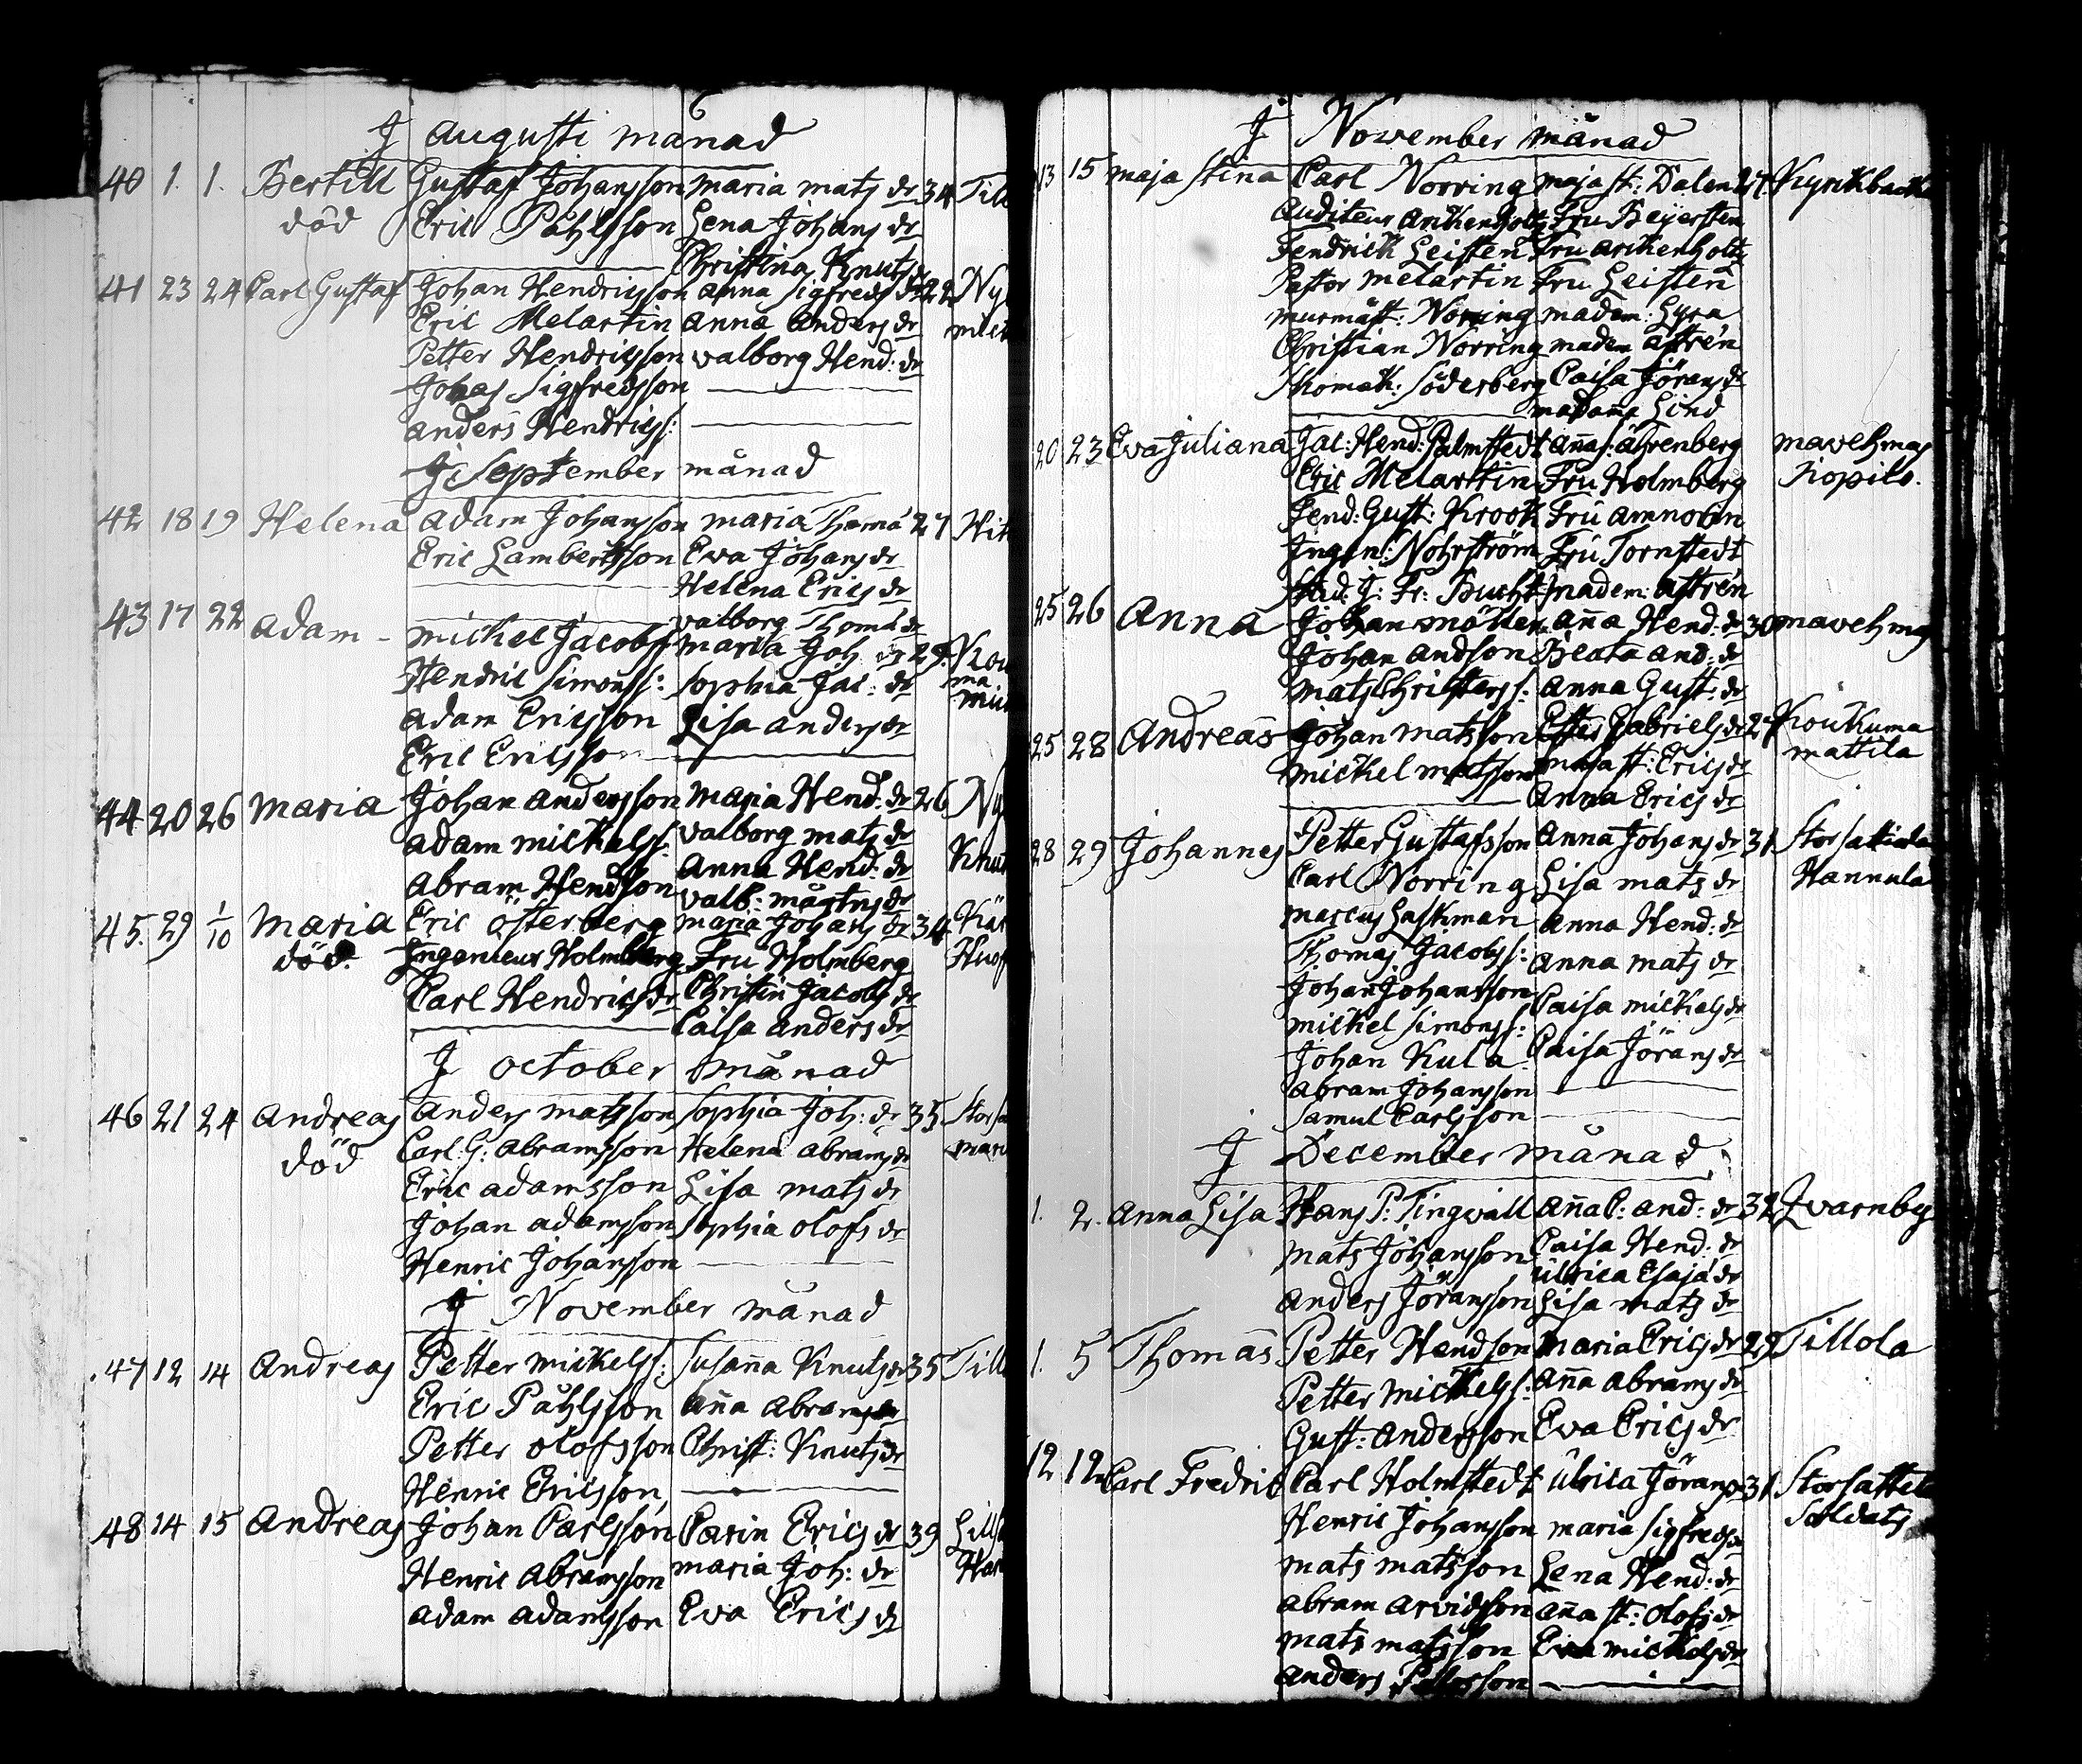 J Augusti månad
40 1. 1. Bertill Gustaf Johansson Maria Mats dr 34 Till
död Eric Påhlsson Lena Johans dr
Christina Knuts dr
41 23 24 Carl Gustaf Johan Hendricsson Anna Sigfreds dr 22 Ny
Eric Melartin Anna Anders dr
Petter Hendricsson Valborg Hend: dr
Johas Sigfredsson
Anders Hendricss:
J September månad
42 18 19 Helena Adam Johansson Maria Thoma 27 Hit
Eric Lambertsson Eva Johans dr
Helena Erics dr
Valborg Thom dr
43 17 22 Adam - Mickel Jacobss Maria Joh dr 29. Kou
Hendric Simonss: Sophia Jac: dr ma
Adam Ericsson Lisa Anders dr
Eric Ericsson
44 20 26 Maria Johan Andersson Maria Hend: dr 26 Ny
Adam Mickelss: Valborg Mats dr
Abram Hendson Anna Hend: dr Knut
Valb: Mårtens dr
45. 29 1/10 Maria Eric Österberg Maria Johans dr 34 Kär
död. Ingenieur Holmberg Fru Holmberg
Carl Hendrics dr Christin Jacobs dr
Caisa Anders dr
J October månad
46 21 24 Andreas Anders Matsson Sophia Joh: dr 35 Storsa
död Carl: G: Abramsson Helena Abrams dr
Eric Adamsson Lisa Mats dr
Johan Adamsson Sophia Olofs dr
Henric Johansson
J November månad
47 12 14 Andreas Petter Mickelss: Susaña Knuts dr 35 Till
Eric Påhlsson Aña Abrams dr
Petter Olofsson Christ: Knuts dr
Henric Ericsson,
48 14 15 Andreas Johan Carlsson Carin Erics dr 39 Lill
Henric Abramsson Maria Joh: dr
Adam Adamsson Eva Erics dr
J November månad
13 15 Maja Stina Carl Norring Maja St: Dalen 27. Kyrckbacka
Auditeur Arckenholtz Fru Beijersten
Fendrick Leisten Fru Arckenholtz
Pastor Melartin Fru Leisten
murmäst: Norring madem: Lyra
Christian Norring madem Astrén
Thomas: Söderberg Caisa Jörans dr
madama Lind
20 23 Eva Juliana Jac: Hend: Palmstedt Añas: Åhrenberg Mavehmas
Eric Melartin Fru Holmberg Kopils.
Fend: Gust: Krook Fru Amnorin
Ingen: Nohrström Fru Tornstedt
Stud: J: Fr: Bucht madem: Astrén
25 26 Anna Johan Möller Aña Hend: dr 30 Mavehmas
Johan Andson Beata And: dr
Mats Christerss: Anna Gust: dr
25 28 Andreas Johan Matsson Ester Gabriels dr 27 Koukuma
Mickel Matsson Maja St: Erics dr mattila
Anna Erics dr
28 29 Johannes Petter Gustafsson Anna Johans dr 31 Storsattiala
Carl Norring Lisa Mats dr Hannula
Marcus Lastman Anna Hend: dr
Thomas Jacobss: Anna Mats dr
Johan Johansson Caisa Mickels dr
Mickel Simonss: Caisa Jörans dr
Johan Kula
Abram Johansson
Samul Carlsson
J December månad
1. 2. Anna Lisa Hans P: Tingvall Aña C: And: dr 32 Qvarnby
Mats Johansson Caisa Hend: dr
Ulrica Esaja dr
Anders Jöransson Lisa Mats dr
1. 5 Thomas Petter Hendson Maria Erics dr 29 Tillola
Petter Mickelss: Aña Abrams dr
Gust: Andersson Eva Erics dr
12 12 Carl Fredric Carl Holmstedt Ulrica Jörans 31 Storsattila
Henric Johansson Maria Sigfreds dr Soldats
Mats Matsson Lena Hend: dr
Abram Arvidsson Aña St: Olofs dr
Mats Matsson Eva Mickels dr
Anders Pettersson